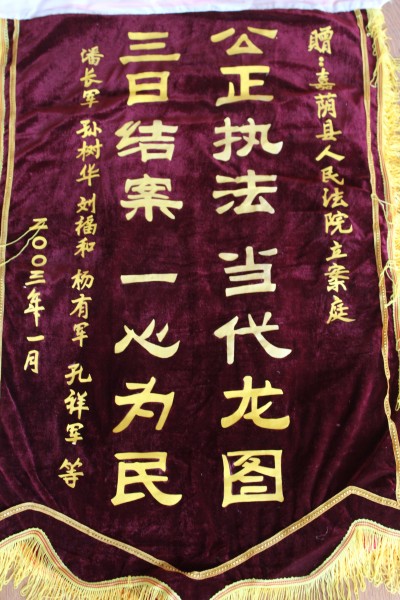 赠：嘉荫县人民法院立案庭
公正执法 当代龙图
三日结案 一心为民
潘长军 孙树华 刘福和 杨有军 孔祥军 等
二00三年一月